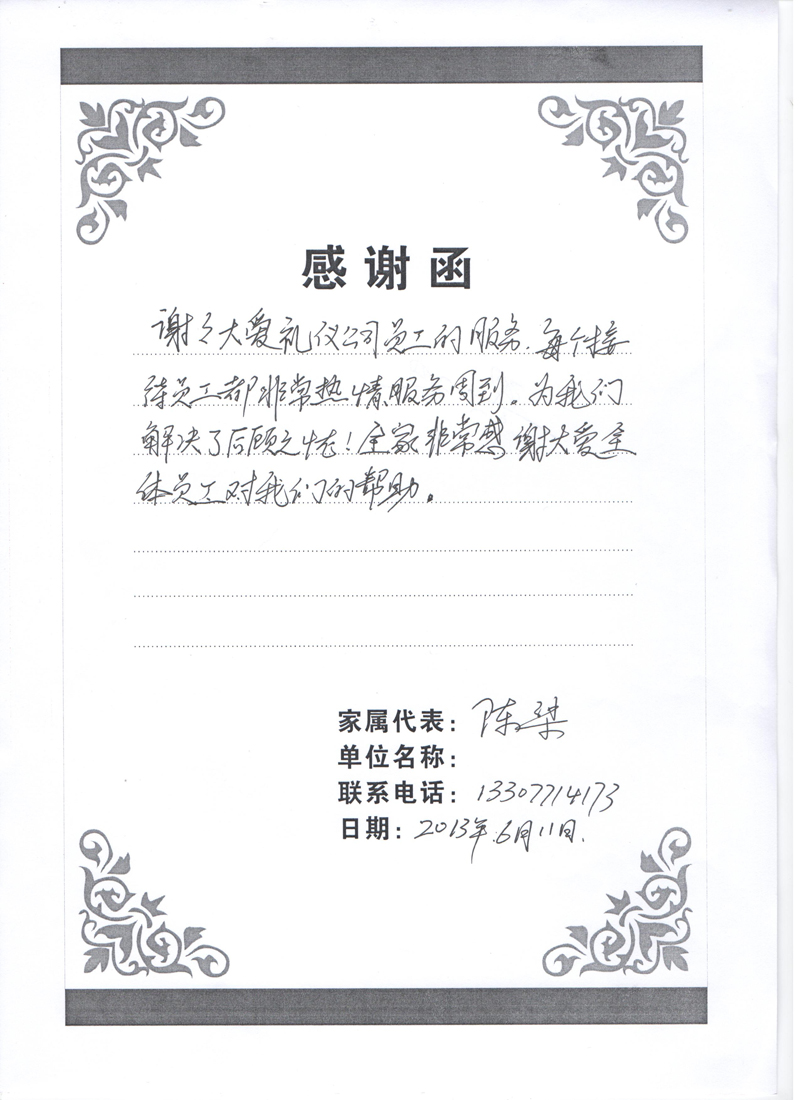 感谢函
谢谢大爱礼仪公司员工的服务,每个接
待员工都非常热情服务周到。为我们
解决了后顾之忧!全家非常感谢大爱全
体员工对我们的帮助。
家属代表:陈桀
单位名称:
联系电话:13307714173
日期:2013年.6月11日.